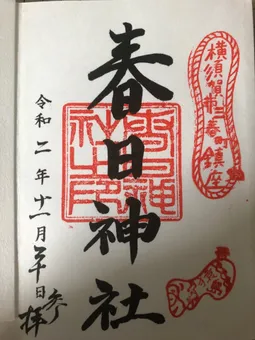 横須賀市三春町鎮座
春日神社
春日神社之印
令和二年十一月二十日参拝